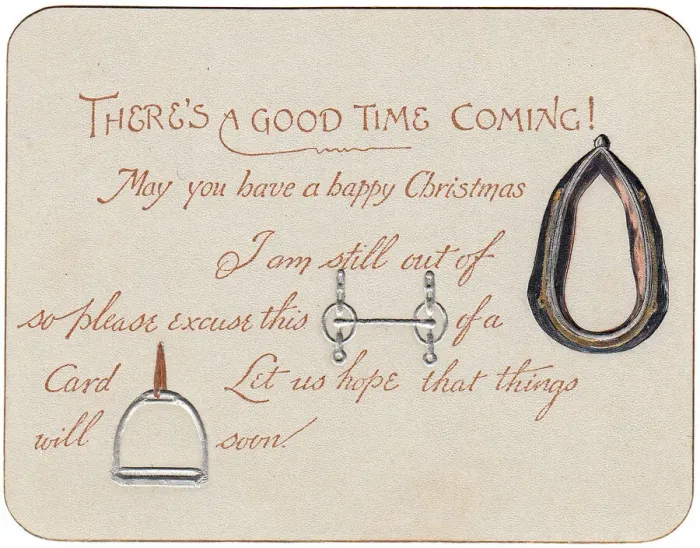 THERE'S A GOOD TIME COMING!
May you have a happy Christmas
I am still out of
so please excuse this of a
Card Let us hope that things
will soon.